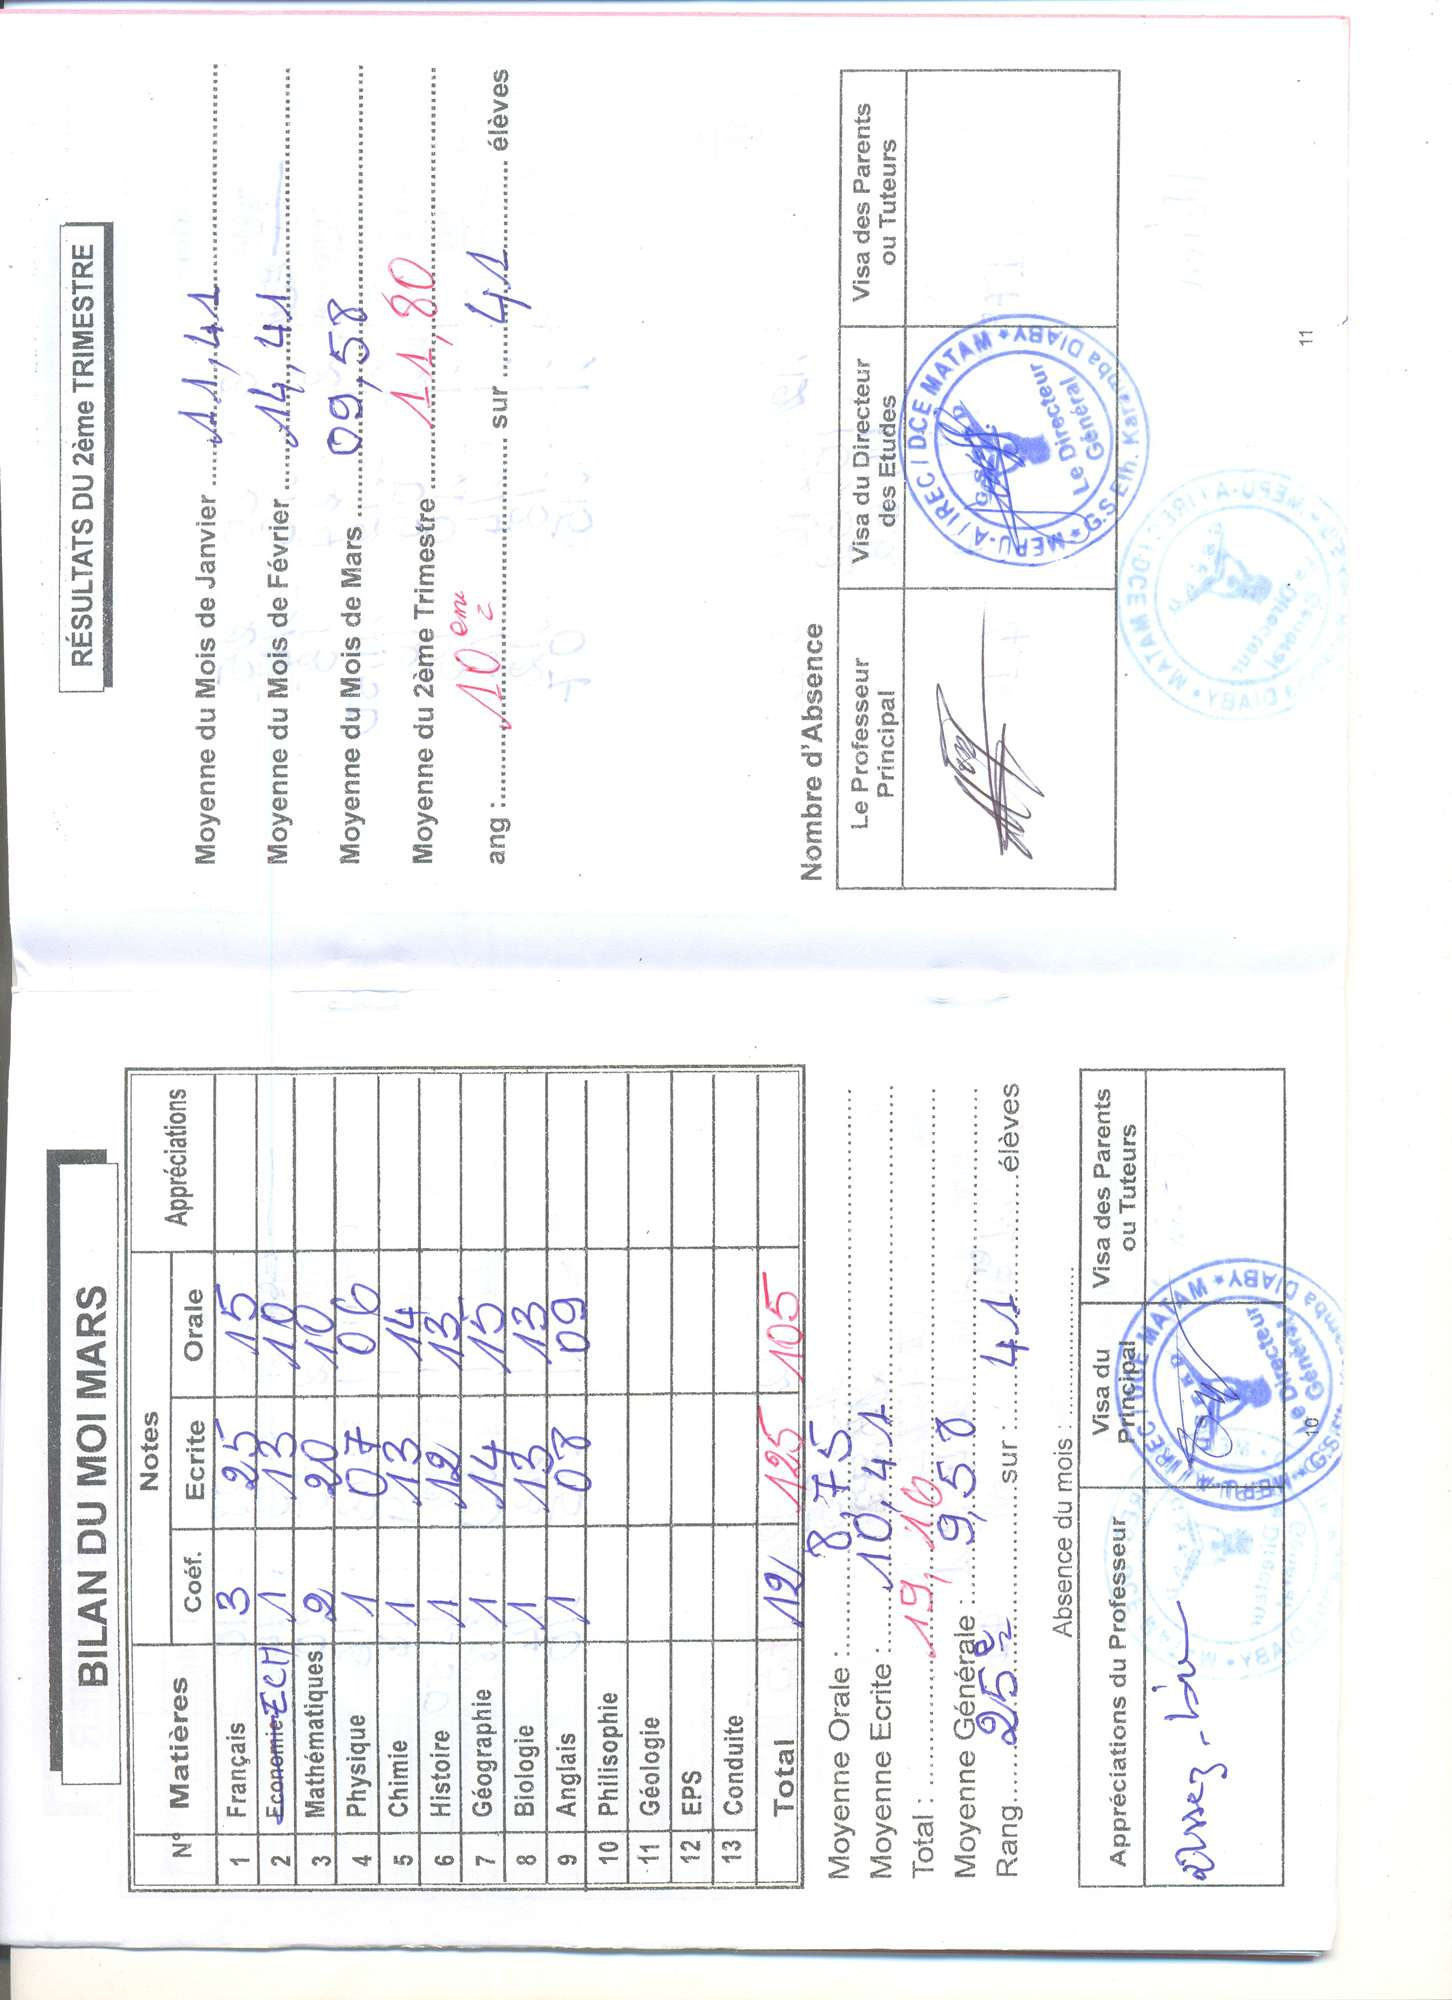 BILAN DU MOI MARS
N° Matières Notes Appréciations
Coéf. Ecrite Orale
1 Français 3 25 15
2 Economie ECM 1 13 10
3 Mathématiques 2 20 10
4 Physique 1 07 06
5 Chimie 1 13 14
6 Histoire 1 12 13
7 Géographie 1 14 15
8 Biologie 1 13 13
9 Anglais 1 08 09
10 Philisophie
11 Géologie
12 EPS
13 Conduite
Total 12 125 105
Moyenne Orale : 8,75
Moyenne Ecrite : 10,41
Total : 19,16
Moyenne Générale : 9,58
Rang 25e sur : 41 élèves
Absence du mois :
Appréciations du Professeur Visa du Principal Visa des Parents ou Tuteurs
Assez-bien
MEPU-A / IREC / DCE MATAM
Le Directeur Général
10
RÉSULTATS DU 2ème TRIMESTRE
Moyenne du Mois de Janvier 11,41
Moyenne du Mois de Février 14,41
Moyenne du Mois de Mars 09,58
Moyenne du 2ème Trimestre 11,80
ang : 10eme sur 41 élèves
Nombre d'Absence
Le Professeur Principal Visa du Directeur des Etudes Visa des Parents ou Tuteurs
MEPU-A / IREC / DCE MATAM
G.S Elh. Karamba DIABY
Le Directeur Général
11